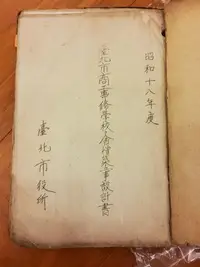 昭和十八年度
臺北市商業修學校々舍增築工事設計書
臺北市役所